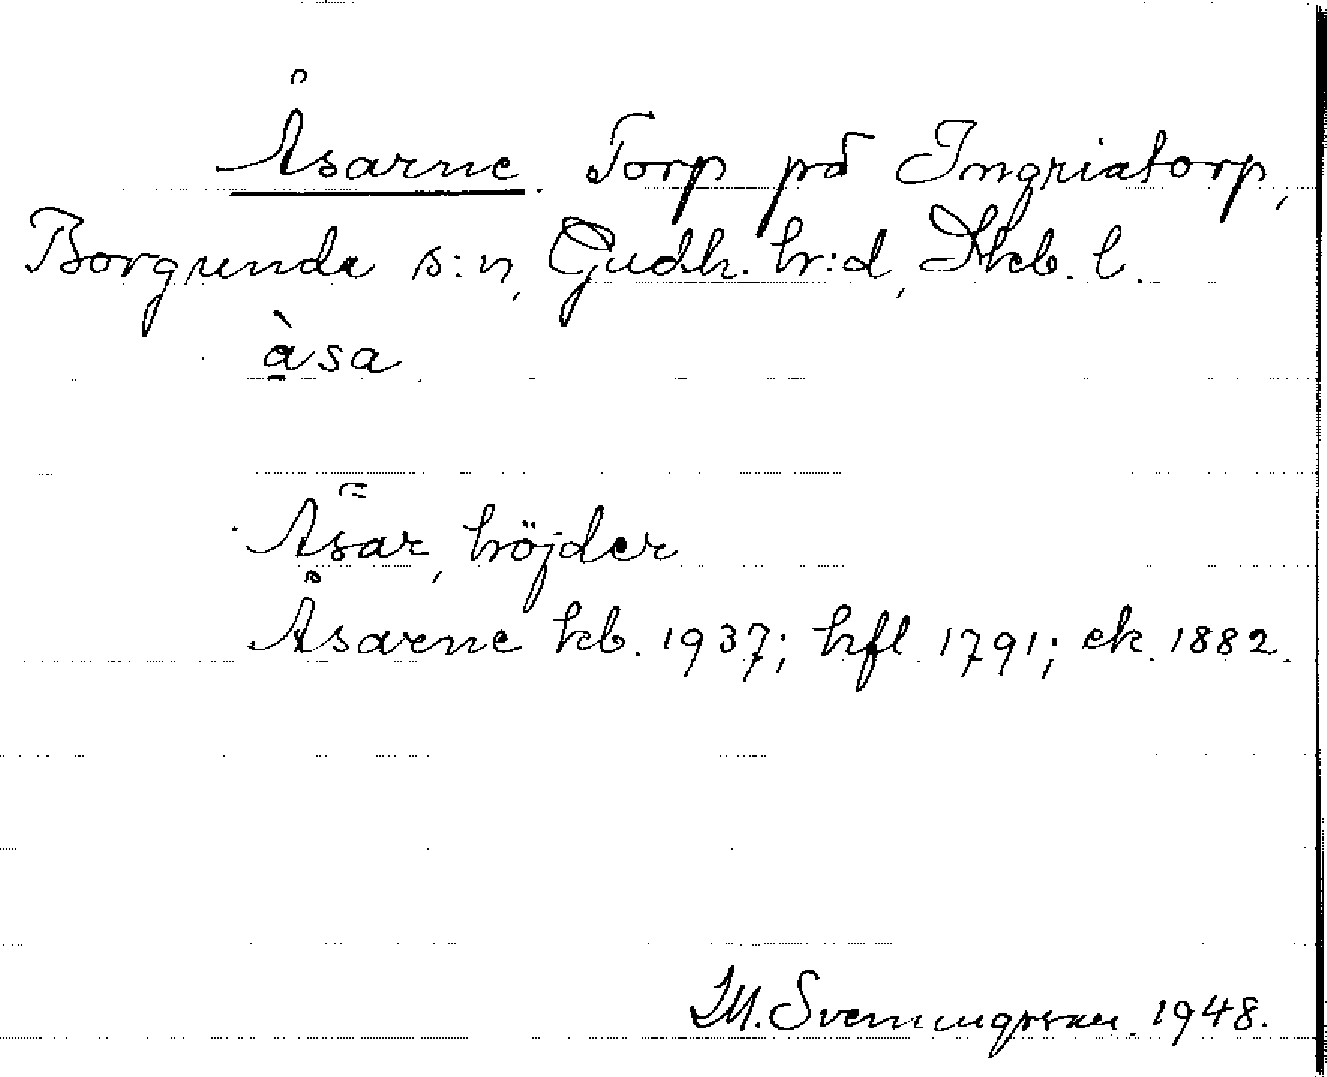 Åsarne. Torp på Ingriatorp,
Borgunda s:n, Gudh. hr:d, Skb. l.
àsa
Åsar, höjder
Åsarne kb. 1937; hfl. 1791; ek. 1882.
M. Svenningsson. 1948.